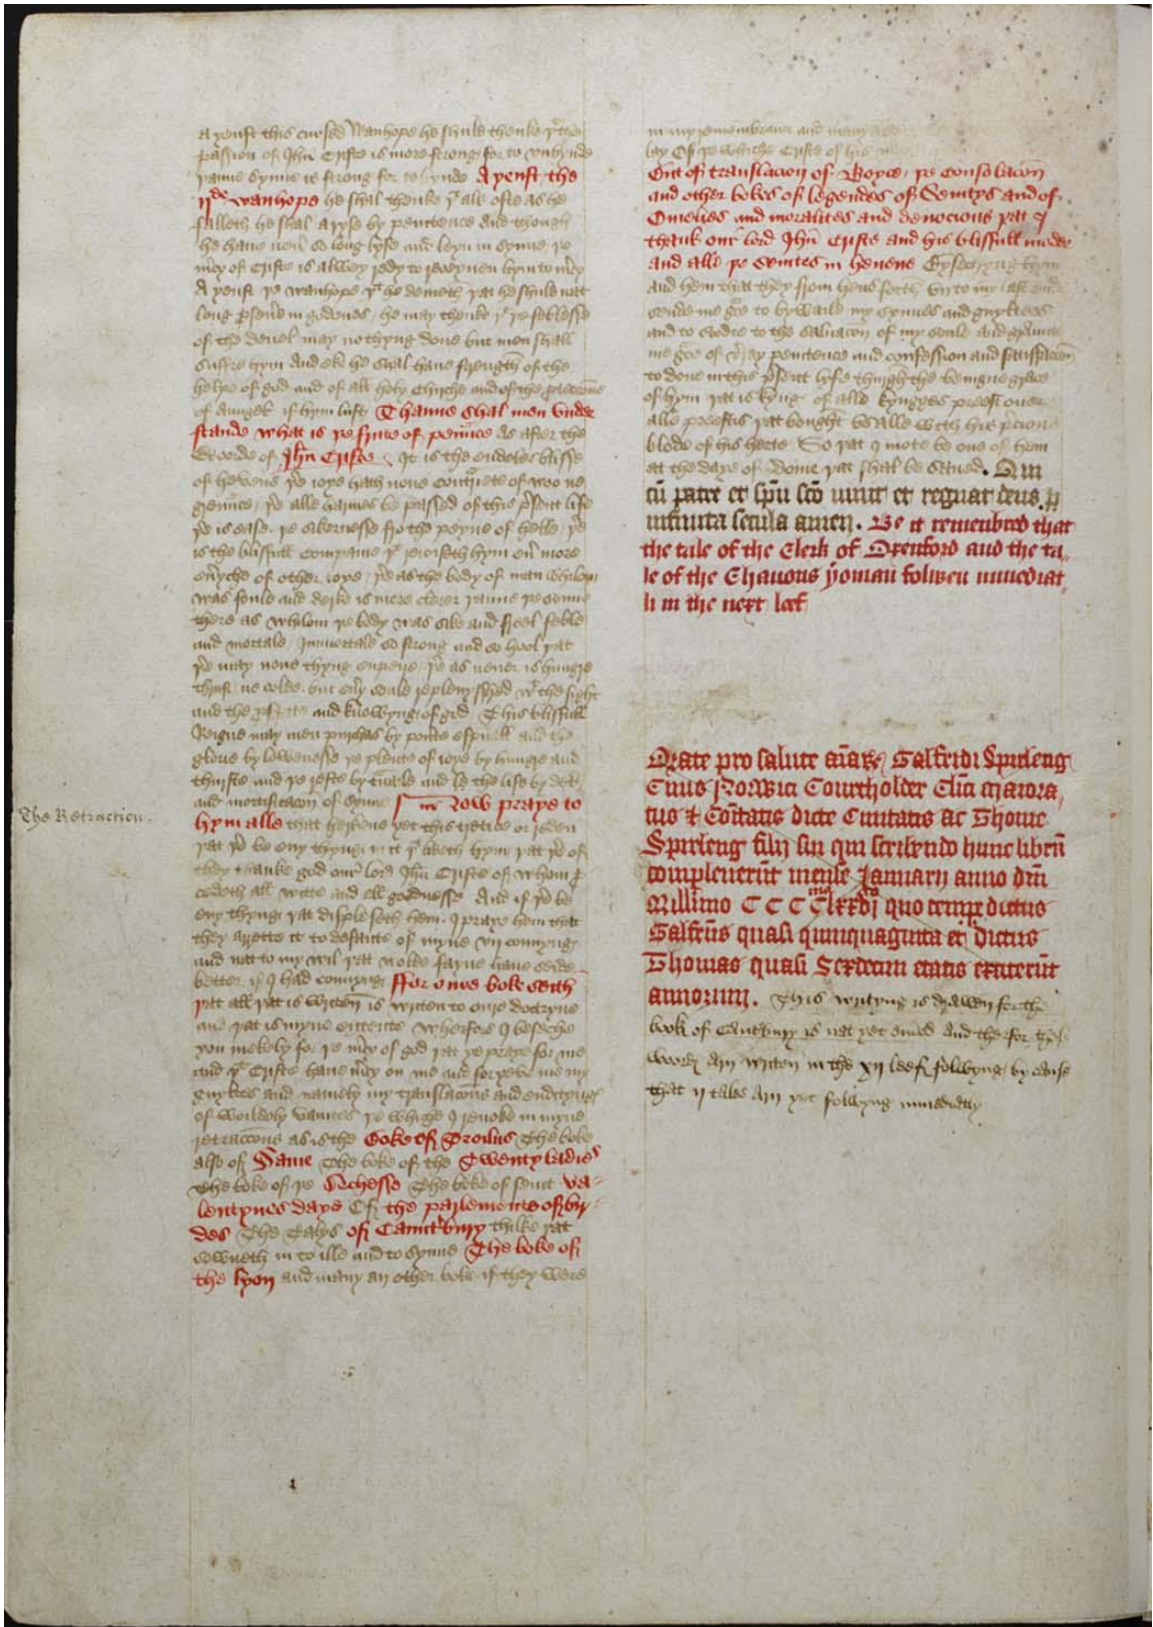 A yenst this cursed Wanhope he shuld thenke þt the
passion of Jhu Criste is more strong for to vnbynde
þanne synne is strong for to bynde A yenst the
ijde wanhope he shal thenke þt als ofte as he
falleth he shal a ryse by penitence And though
he haue neuer so long lyfe and leyn in synne þe
mcy of Criste is alwey redy to receyuen hym to mcy
A yenst þe wanhope þt he demeth þat he shuld nat
long pseuer in godenes he may thenke þt þe feblesse
of the deuel may no thyng done but men shall
suffre hym And eke he shal haue strength of the
helpe of god and of all holy Chirche and of the proteccoun
of aungels if hym lust Thanne shal men vnder
stande what is þe frute of penaunce As after the
Woorde of Jhu Criste It is the endeles blisse
of heuene þer ioye hath none contrariete of woo ne
greuaunce þer alle harmes be passed of this psent life
þer is ease þe sikernesse fro the peyne of helle þer
is the blisfull companie þt reioiseth hym euer more
euerych of other ioye þer as the body of man whilom
was foule and derke is more clerer þanne þe sonne
there as whilom þe body was sike and freel feble
and mortale Immortale so strong and so hool þat
þer may none thyng enpeyre þer as neuer is hungre
thurst ne colde but euery soule replenysshed wt the sight
and the and knowyng of god This blisfull
Reigne may men purchas by pouerte espirituell and the
glorie by lowenesse þe plente of ioye by hungre and
thurste and þe reste by trauale and the life by deth
and mortificacon of synne
The Retraction.
Now praye to
hym alle that herkene yet this tretice or reden
þat if þer be eny thyng in it þt liketh hym þat þer of
they thanke god oure lord Jhu Criste of whom p
cedeth all witte and all goodnesse And if þer be
eny thyng þat displeseth hem I praye hem that
they arrette it to defaute of myne vnconnyng
and natt to my wil þat wolde fayne haue seide
better if I had connyng ffor oure boke seith
þat all þat is writen is writen to oure doctryne
and þat is myne entente Wherfore I beseche
you mekely for þe mcy of god þat ye praye for me
and þt Criste haue mcy on me and foryeue me my
gyltes and namely my translacons and endityngs
of worldely vanites þe whiche I reuoke in myne
retraccouns as is the Boke of Troilus The boke
also of Fame The boke of the Twenty ladies
The boke of þe Duchesse The boke of seint va-
lentynes daye Of the parlemente of bir-
des The Talys of Cauntbury thilke þat
sowneth in to ille and to synne The boke of
the lyon and many an other boke if they were
in my remembrance and many a
lay Of þe whiche Criste of his
But of translacion of Boyce þe consolacon
and other bokes of legendes of Seintys and of
Omelies and moralites and deuocions þat I
thank our lord Jhu Criste and his blisfull moder
and alle þe seintes in heuene Bysechyng hem
and hem that they from hens forth vn to my last ende
sende me grace to bywaile my synnes and gyltees
and to stodie to the saluacon of my soule And graunte
me grace of verray penitence and confession and satisfaccon
to done in this psent lyfe thurgh the benigne grace
of hym þat is kyng of alle kynges preest ouer
alle preestis þat bought vs alle with his precious
blode of his herte So þat I mote be one of hem
at the daye of dome þat shal be saued. Qui
cu patre et spu sco viuit et regnat deus p
infinita secula amen. Be it remembred that
the tale of the Clerk of Oxenford and the ta-
le of the Chanons yoman folwen immediat-
li in the next leef
Orate pro salute aiar Galfridi Spirleng
Ciuis Norwici Courtholder Clici maiora-
tus & Coitatis dicte Ciuitatis ac Thome
Spirleng filij sui qui scribendo hunc libru
compleuerut mense Januarij anno dni
Millimo CCCC lxxvj quo tempe dictus
Galfrus quasi quinquaginta et dictus
Thomas quasi Sexdecim etatis extiterut
annorum. This writyng is drawen for the
book of Cauntbury is nat yet ended And therfor thes
woordz Arn writen in the xij leef folwyng by cause
that ij tales Arn yet folwyng immediatly